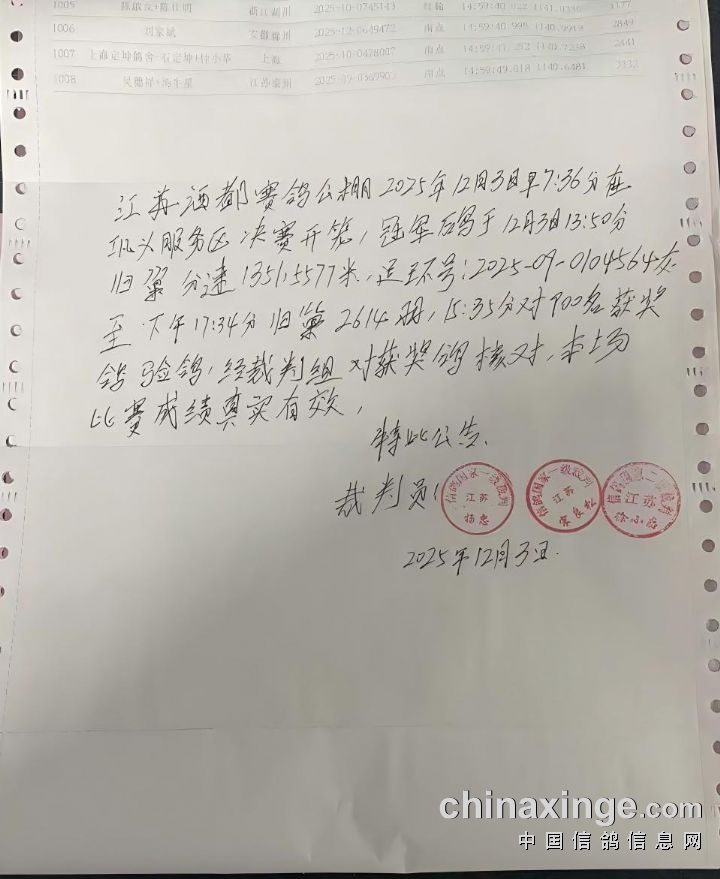 1005 陈啟友+陈仕明 浙江湖州 2025-10-0745143 红轮 14:59:40.922 1141.0336 1177
1006 刘家斌 安徽滁州 2025-12-0649472 雨点 14:59:40.995 1140.9919 2849
1007 上海定坤鸽舍-石定坤+钟小华 上海 2025-10-0478007 雨点 14:59:47.252 1140.7238 2441
1008 吴德祥+冯生星 江苏泰州 2025-09-0369903 雨点 14:59:49.018 1140.6481 2332
江苏酒都赛鸽公棚2025年12月3日早7:36分在
服务区决赛开笼,冠军鸽于12月3日13:50分
归巢分速1351.5577米,足环号:2025-09-0104564交
至下午17:34分归巢2614羽,15:35分对900名获奖
鸽验鸽,经裁判组对获奖鸽核对,本场
比赛成绩真实有效,
特此公告.
裁判员:
信鸽国家一级裁判 江苏 杨忠
信鸽国家一级裁判 江苏
信鸽国家二级裁判 江苏 徐小忠
2025年12月3日.
chinaxinge.com
中国信鸽信息网